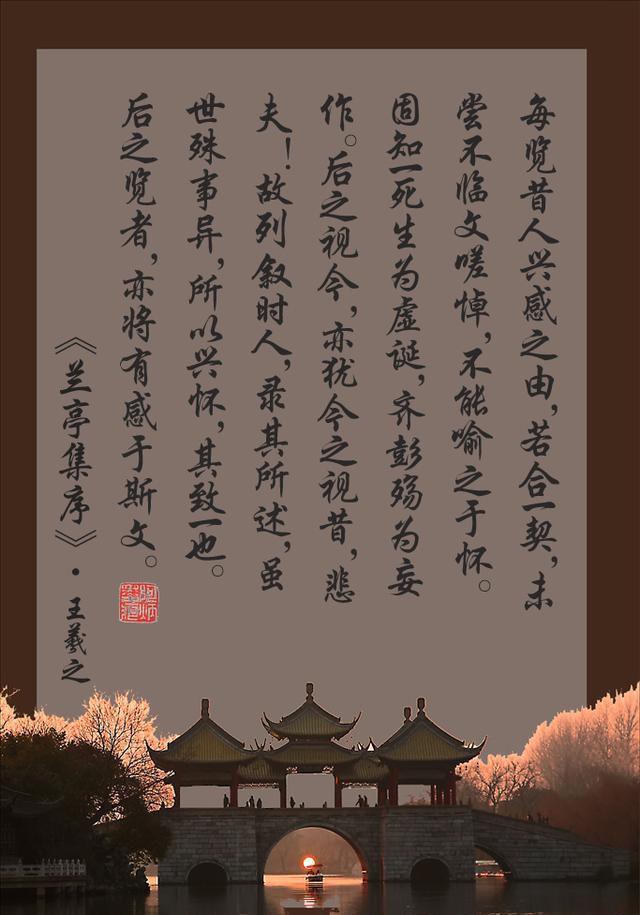 每览昔人兴感之由，若合一契，未
尝不临文嗟悼，不能喻之于怀。
固知一死生为虚诞，齐彭殇为妄
作。后之视今，亦犹今之视昔，悲
夫！故列叙时人，录其所述，虽
世殊事异，所以兴怀，其致一也。
后之览者，亦将有感于斯文。
《兰亭集序》·王羲之